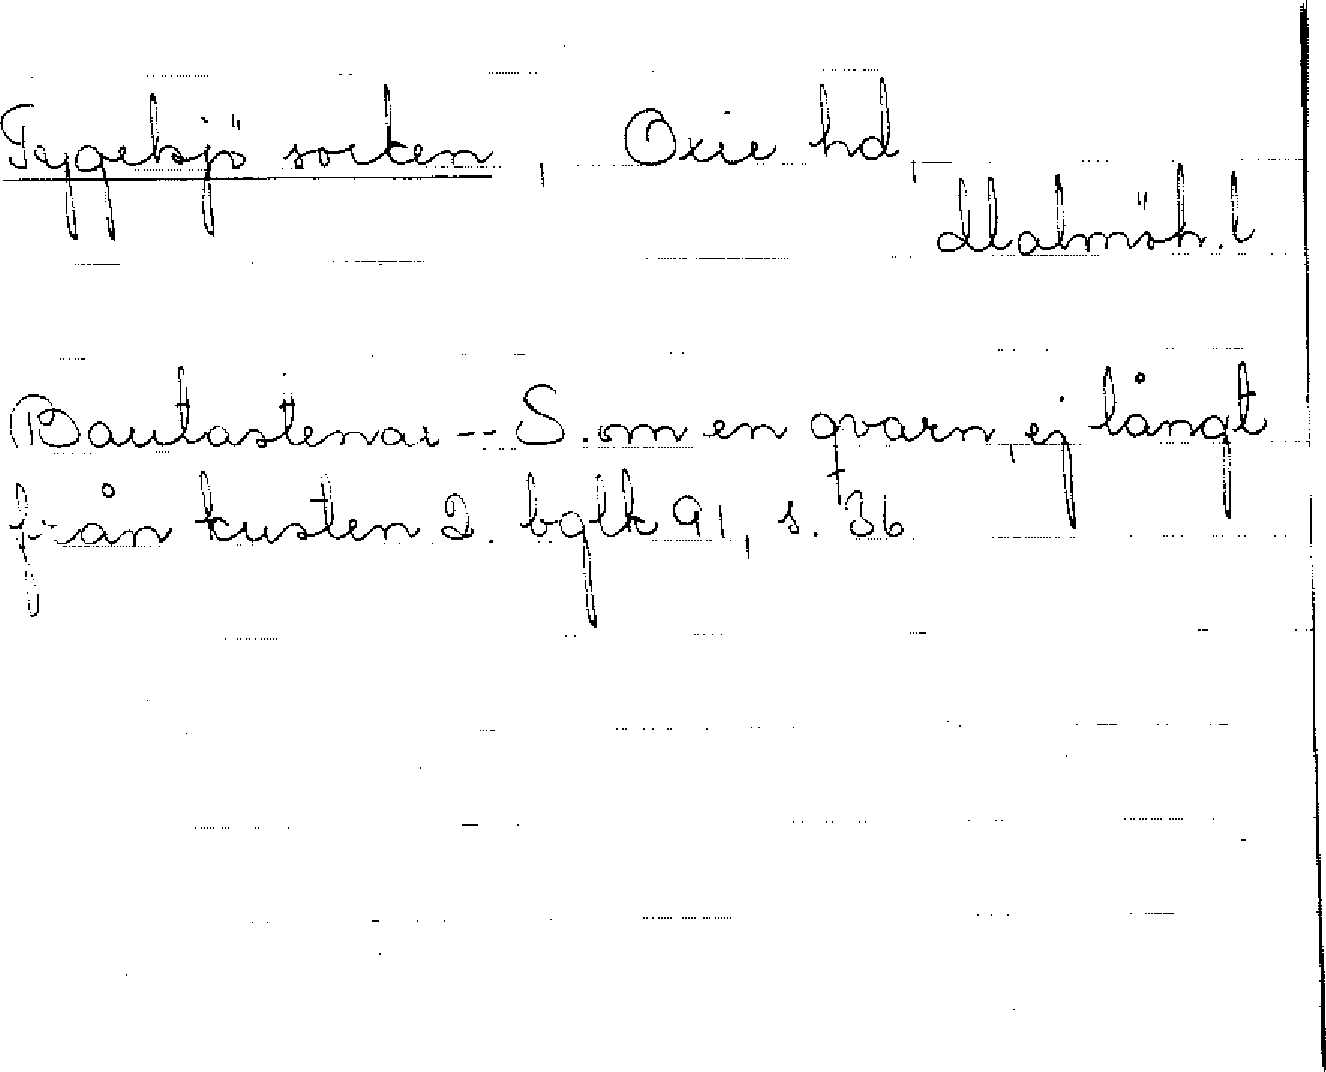 Tygelsjö socken, Oxie hd,
Malmöh. l
Bautastenar -- S. om en qvarn, ej långt
från kusten 2. bglk 91, s. 36